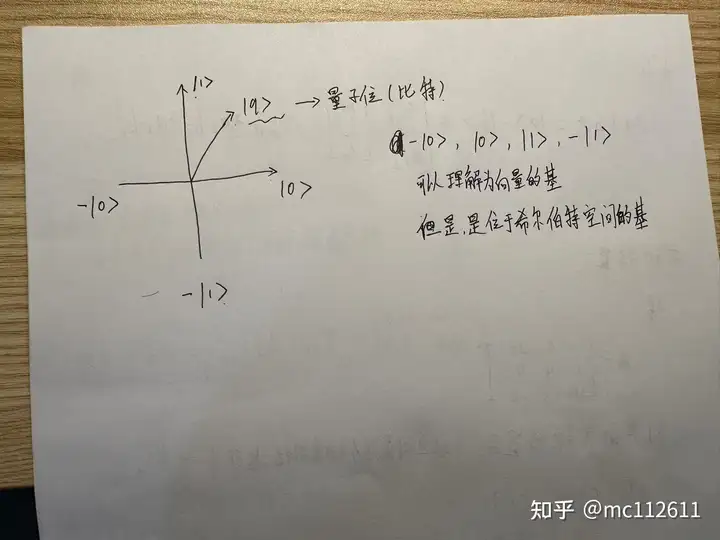 |1>
|q> → 量子位(比特)
-|0>, |0>, |1>, -|1>
可以理解为向量的基
但是,是位于希尔伯特空间的基
-|0>
|0>
-|1>
知乎 @mc112611